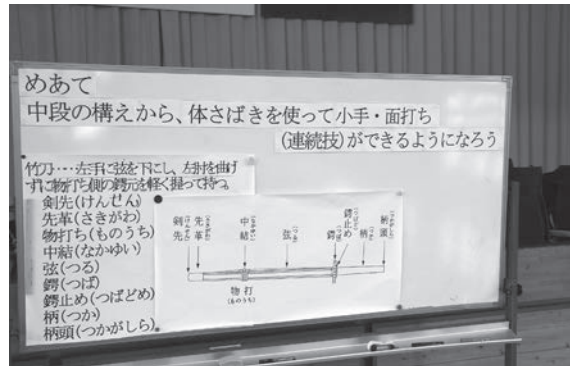 めあて
中段の構えから、体さばきを使って小手・面打ち
(連続技)ができるようになろう
竹刀…左手に弦を下にし、左肘を曲げ
ずに物打ち側の鍔元を軽く握って持つ。
剣先(けんせん)
先革(さきがわ)
物打ち(ものうち)
中結(なかゆい)
弦(つる)
鍔(つば)
鍔止め(つばどめ)
柄(つか)
柄頭(つかがしら)
剣先(けんせん)
先革(さきがわ)
中結(なかゆい)
弦(つる)
鍔(つば)
鍔止め(つばどめ)
柄(つか)
柄頭(つかがしら)
物打
(ものうち)